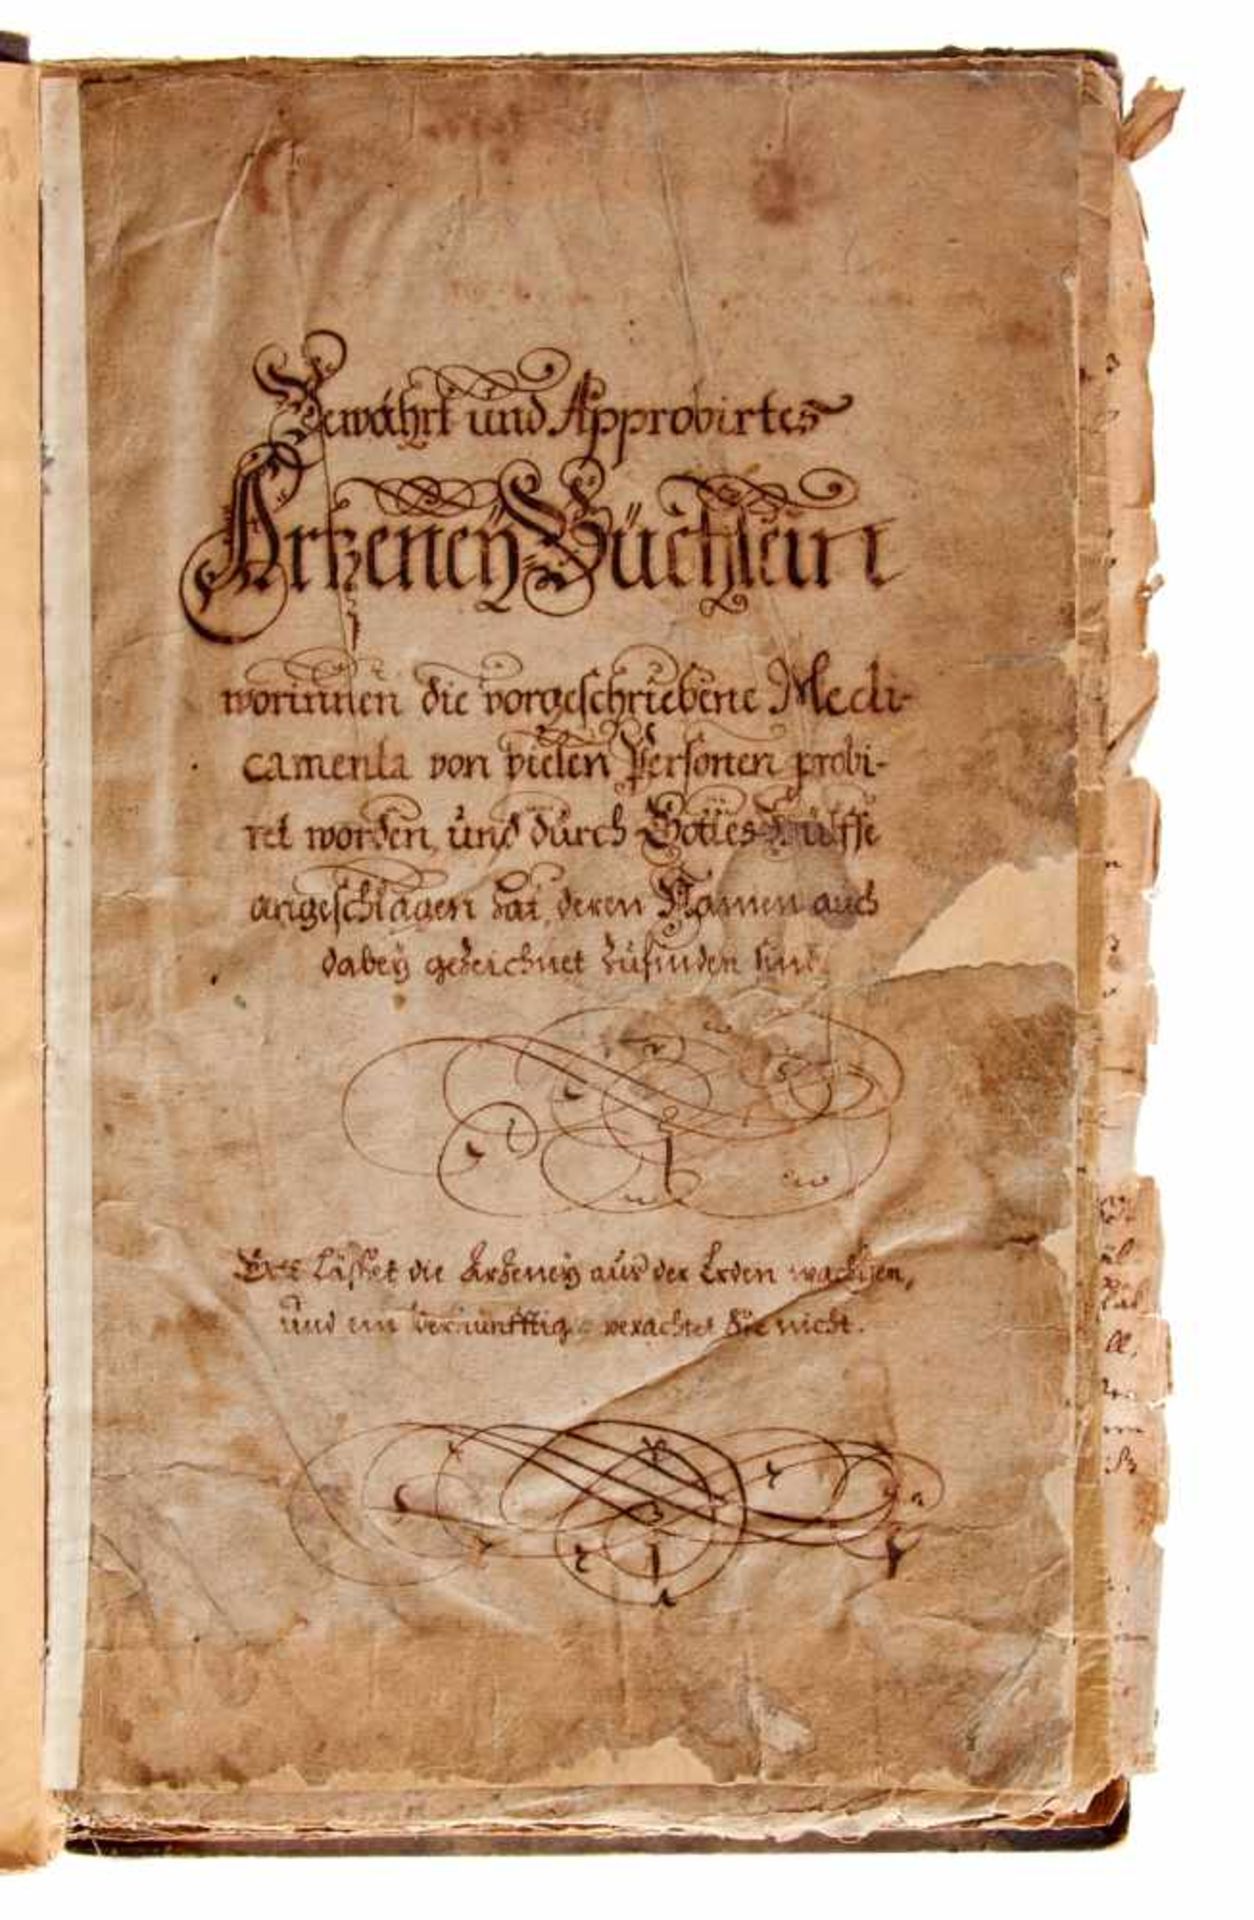 Bewährt und Approbirtes
Artzeneÿ Büchlein
worinnen die vorgeschriebene Medi-
camenta von vielen Persönen probi-
ret worden, und durch Gottes Hülffe
angeschlagen hat, deren Namen auch
dabeÿ gezeichnet zufinden sind.
Gott lässet die Artzeneÿ aus der Erden wachsen,
und ein Vernünfftiger verachtet Sie nicht.